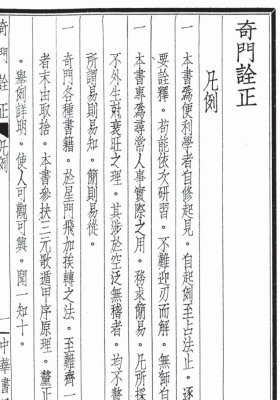 奇門詮正
凡例
一本書爲便利學者自修起見。自起例至占法止。逐
要詮釋。苟能依次研習。不難迎刃而解。無師自
一本書專爲尋常人事實際之用。務求簡易。凡所採
不外生尅衰旺之理。其涉於空泛無稽者。均不
所謂易則易知。簡則易從。
一奇門各種書籍。於星門飛加挨轉之法。至難齊一
者末由取捨。本書參扶三元歌遁甲序原理。釐正
。舉例詳明。使人可觀可興。聞一知十。
奇門詮正
凡例
一 中華書